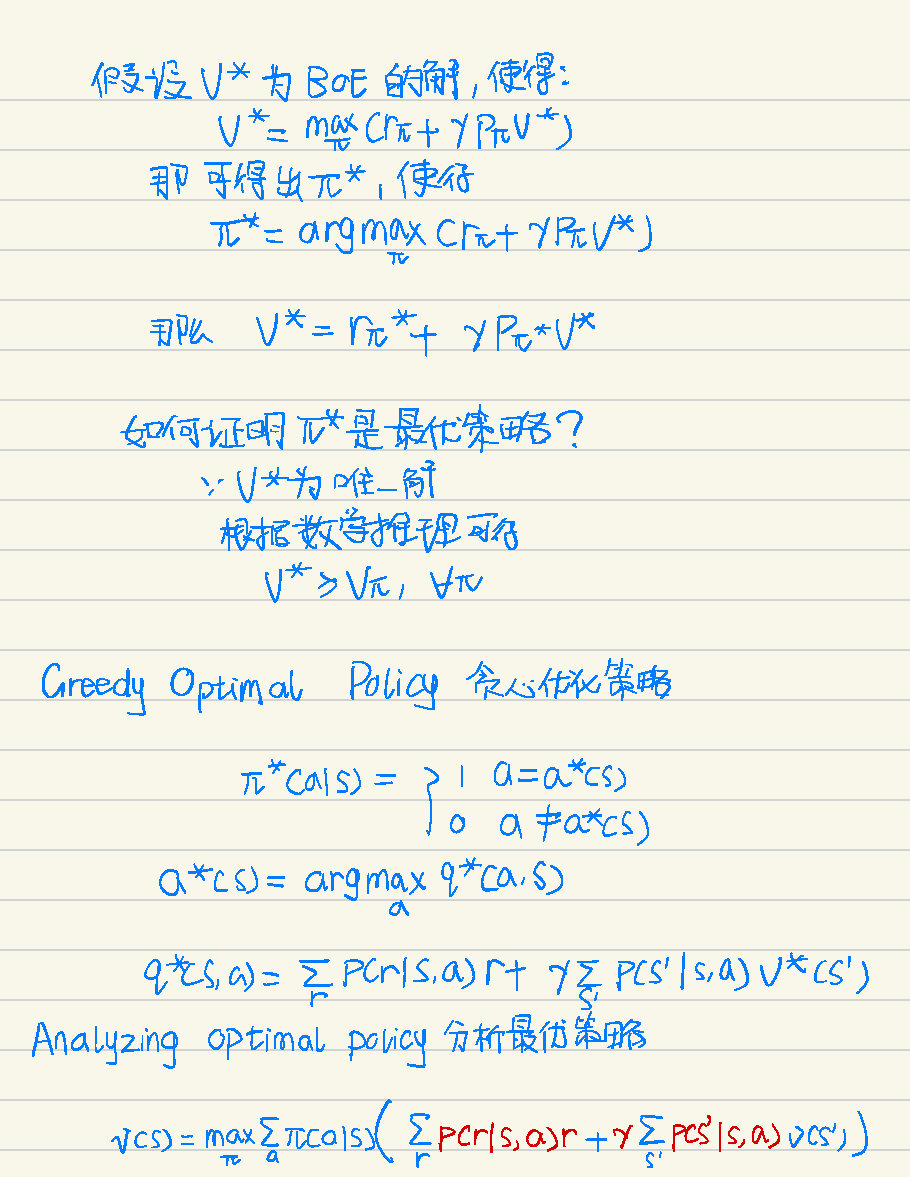 假设 V* 为 BOE 的解, 使得:
V* = max_π (r_π + γ P_π V*)
那可得出 π*, 使得
π* = argmax_π (r_π + γ P_π V*)
那么 V* = r_π* + γ P_π* V*
如何证明 π* 是最优策略?
∵ V* 为唯一解
根据数学推理可得
V* ≥ V_π, ∀π
Greedy Optimal Policy 贪心优化策略
π*(a|s) = { 1 a = a*(s)
0 a ≠ a*(s)
a*(s) = argmax_a q*(a,s)
q*(s,a) = Σ_r P(r|s,a) r + γ Σ_s' P(s'|s,a) V*(s')
Analyzing optimal policy 分析最优策略
v(s) = max_π Σ_a π(a|s) ( Σ_r P(r|s,a) r + γ Σ_s' P(s'|s,a) v(s') )